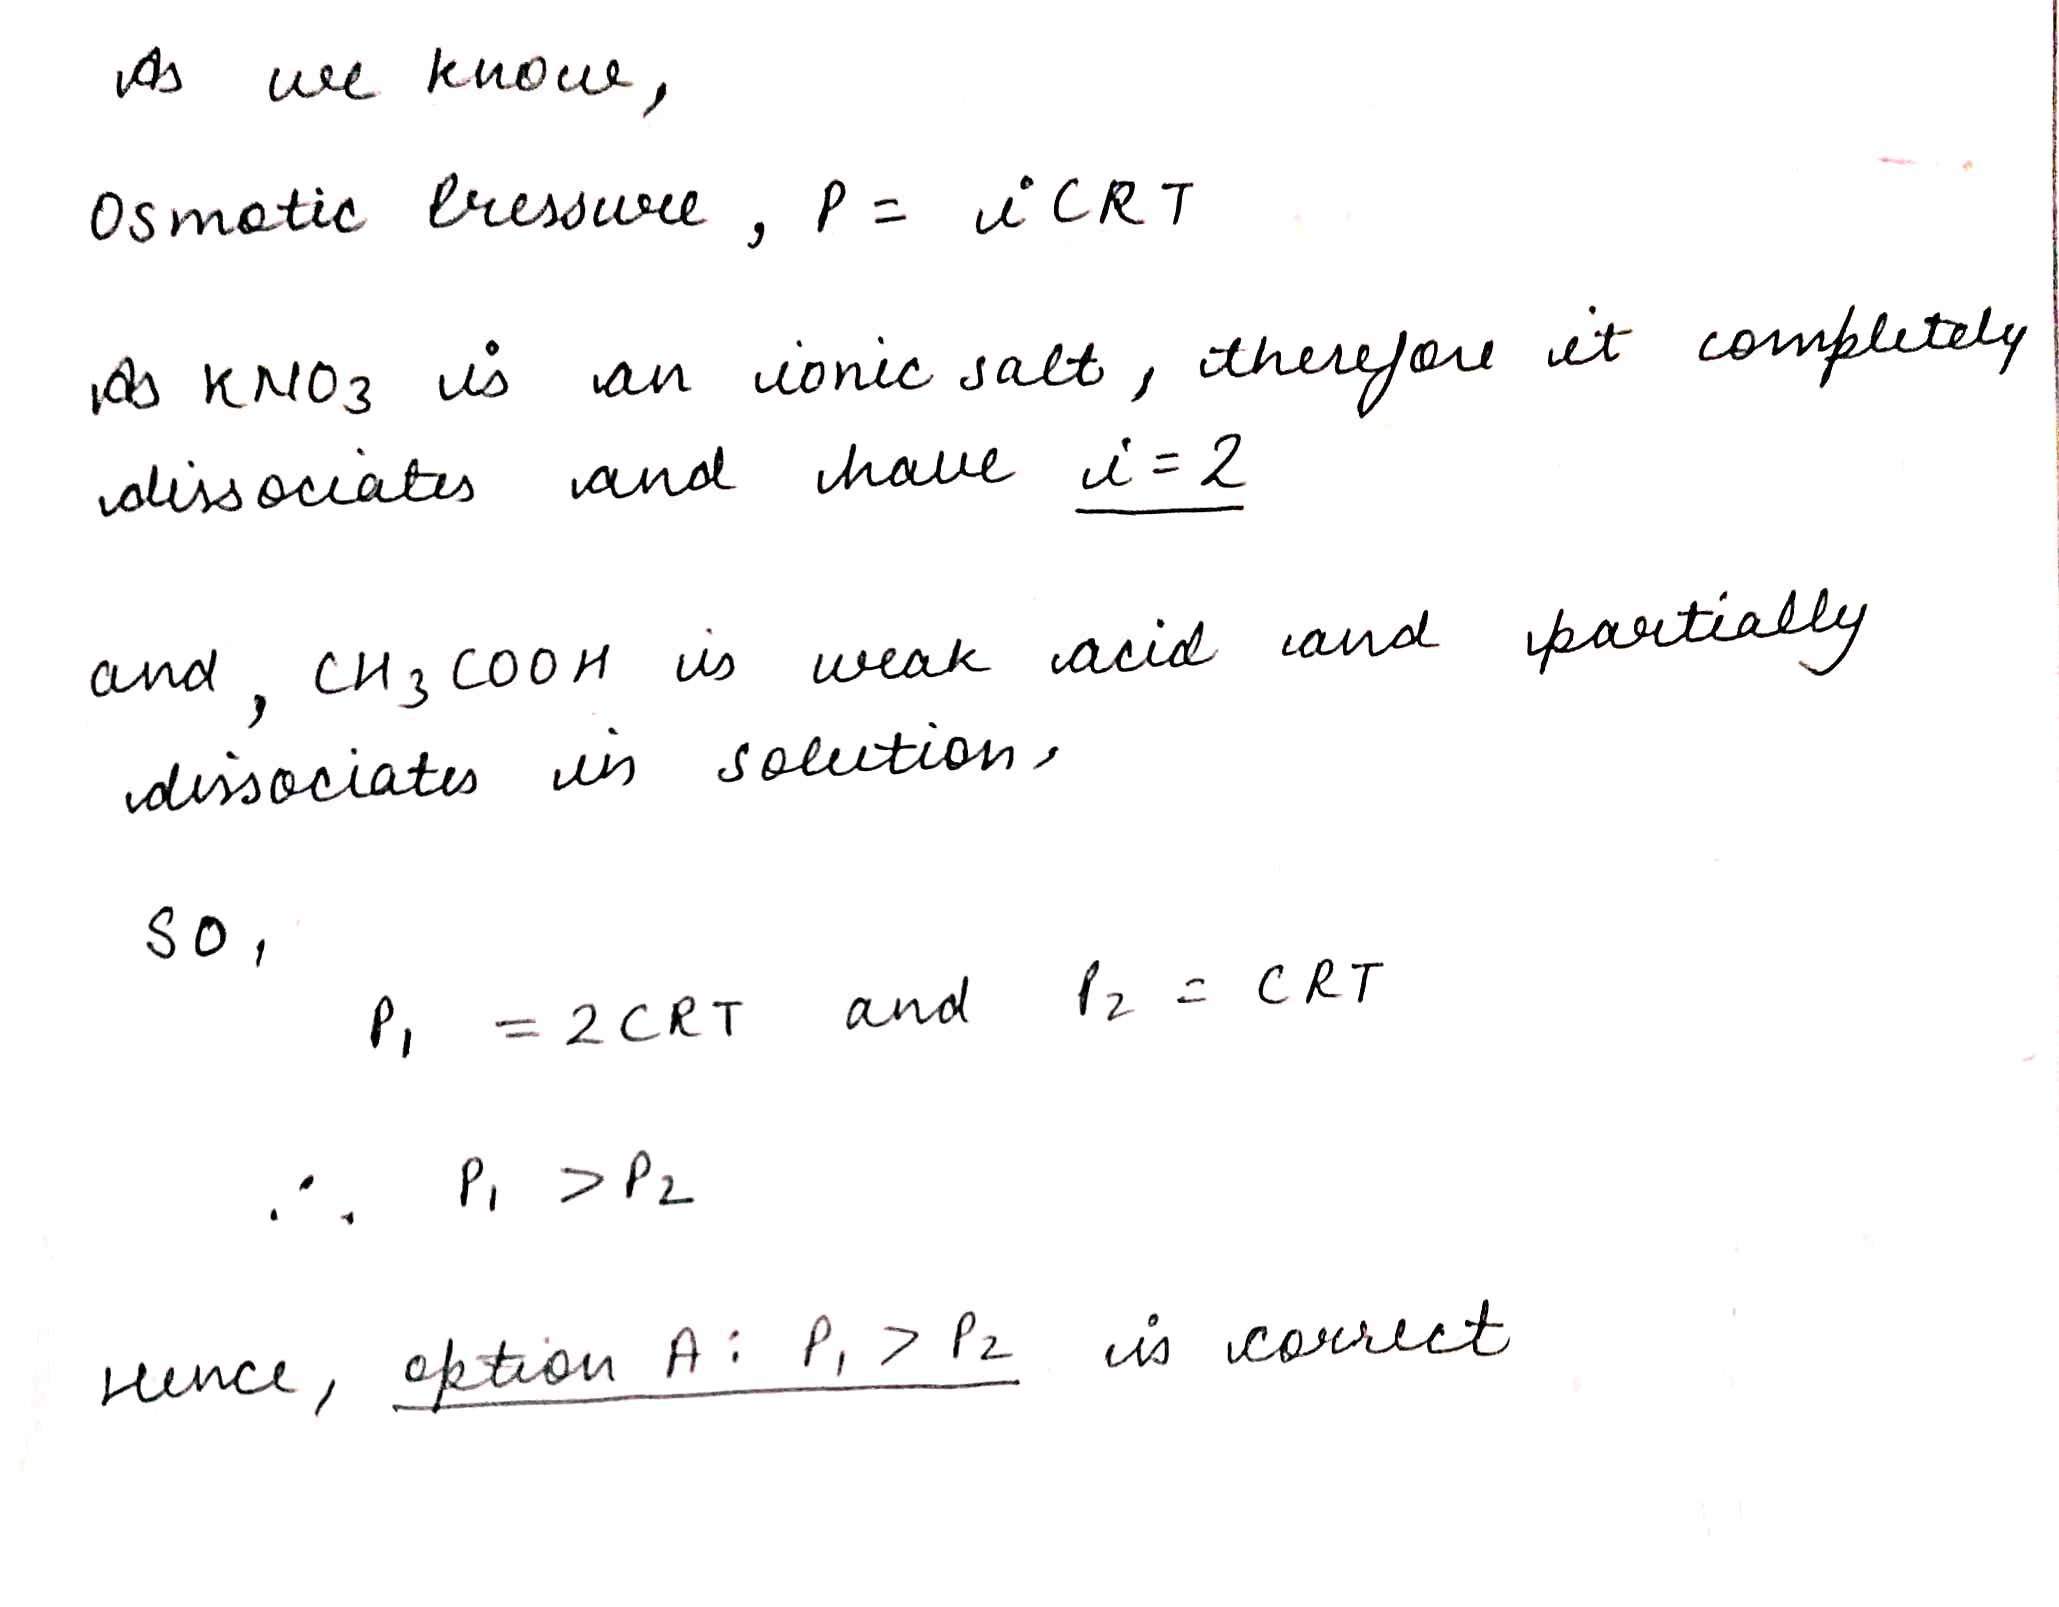 As we know,
Osmotic Pressure, P = iCRT
As KNO3 is an ionic salt, therefore it completely
dissociates and have i = 2
and, CH3COOH is weak acid and partially
dissociates in solution,
SO,
P1 = 2CRT and P2 = CRT
∴ P1 > P2
Hence, option A: P1 > P2 is correct